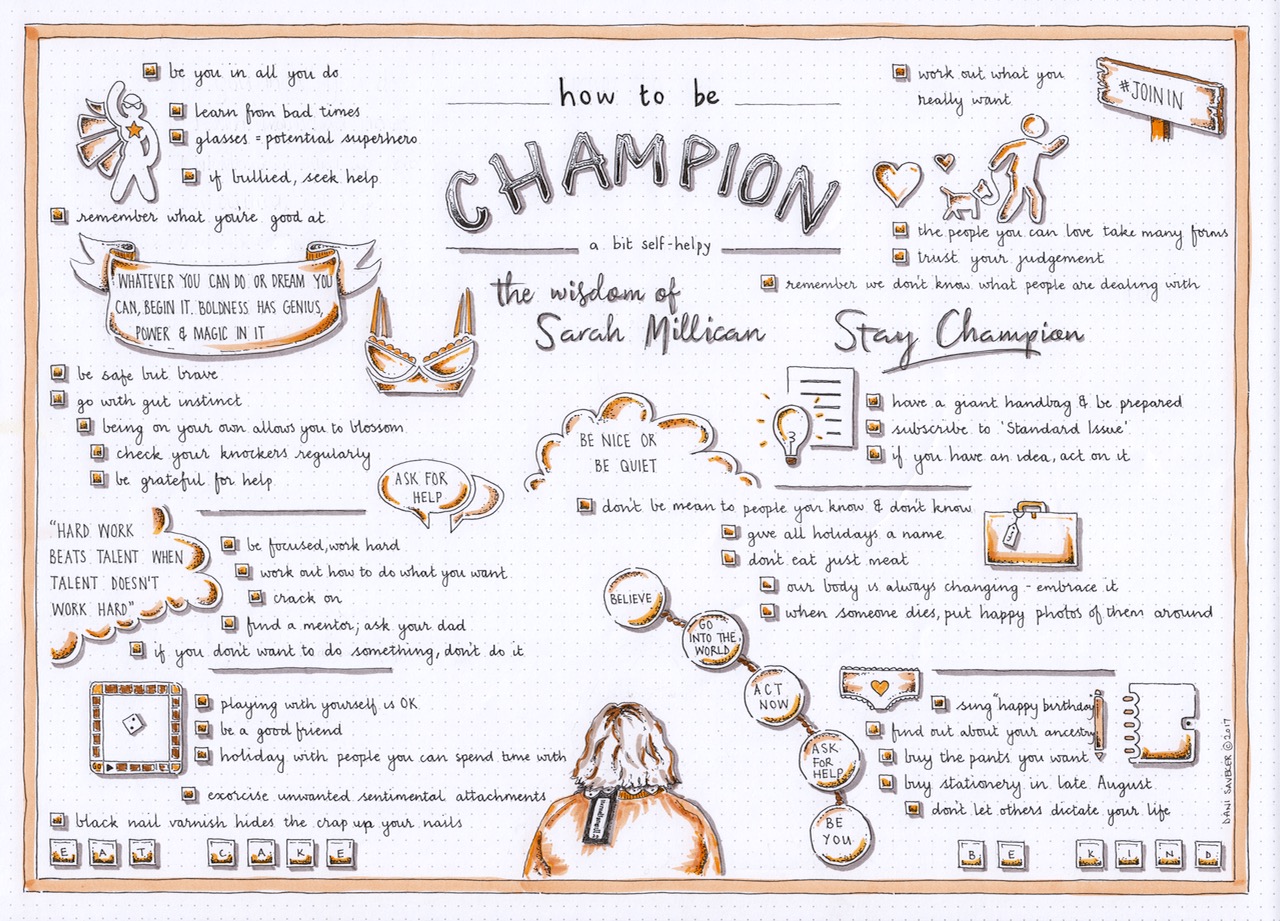 how to be
CHAMPION
a bit self-helpy
the wisdom of
Sarah Millican
be you in all you do
learn from bad times
glasses = potential superhero
if bullied, seek help
remember what you're good at
WHATEVER YOU CAN DO OR DREAM YOU
CAN, BEGIN IT. BOLDNESS HAS GENIUS,
POWER & MAGIC IN IT
be safe but brave
go with gut instinct
being on your own allows you to blossom
check your knockers regularly
be grateful for help
ASK FOR
HELP
"HARD WORK
BEATS TALENT WHEN
TALENT DOESN'T
WORK HARD"
be focused, work hard
work out how to do what you want
crack on
find a mentor; ask your dad
if you don't want to do something, don't do it
playing with yourself is OK
be a good friend
holiday with people you can spend time with
exorcise unwanted sentimental attachments
black nail varnish hides the crap up your nails
EAT CAKE
work out what you
really want
#JOIN IN
the people you can love take many forms
trust your judgement
remember we don't know what people are dealing with
Stay Champion
have a giant handbag & be prepared
subscribe to 'Standard Issue'
if you have an idea, act on it
BE NICE OR
BE QUIET
don't be mean to people you know & don't know
give all holidays a name
don't eat just meat
our body is always changing - embrace it
when someone dies, put happy photos of them around
BELIEVE
GO
INTO THE
WORLD
ACT
NOW
ASK
FOR
HELP
BE
YOU
sing "happy birthday"
find out about your ancestry
buy the pants you want
buy stationery in late August
don't let others dictate your life
BE KIND
DANI SAVEKER © 2017